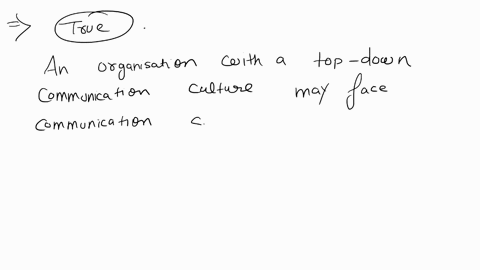 ⇒ True .
An organisation with a top-down
communication culture may face
communication c.